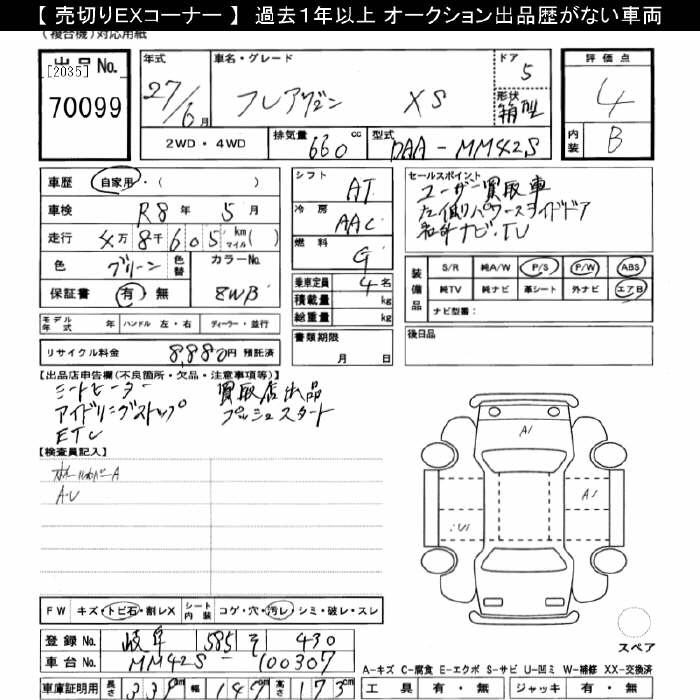 【 売切りEXコーナー 】 過去1年以上 オークション出品歴がない車両
(複合機)対応用紙
出品No. [2035] 70099
年式 27/6月
車名・グレード フレアワゴン XS
ドア 5
形状 箱型
評価点 4
内装 B
2WD・4WD
排気量 660 cc
型式 DAA-MM42S
車歴 自家用・( )
シフト AT
セールスポイント
ユーザー買取車
左側パワースライドドア
社外ナビ・TV
車検 R8年 5月
冷房 AAC
走行 4万8千605 km マイル( )
燃料 G
色 グリーン 色替
カラーNo. 8WB
乗車定員 4名
積載量 kg
総重量 kg
保証書 有・無
装備品 S/R 純A/W P/S P/W ABS
純TV 純ナビ 革シート 外ナビ エアB
ナビ型番:
モデル年式 年 ハンドル 左・右 ディーラー・並行
書類期限 月 日
後日品
リサイクル料金 8,880円 預託済
【出品店申告欄(不良箇所・欠品・注意事項等)】
シートヒーター 買取店出品
アイドリングストップ プッシュスタート
ETC
【検査員記入】
A・U
A1
A1
FW キズ・トビ石・割レX シート内装 コゲ・穴・汚レ・シミ・破レ・スレ
スペア
登録No. 岐阜 585 そ 430
車台No. MM42S-100307
A-キズ C-腐食 E-エクボ S-サビ U-凹ミ W-補修 XX-交換済
車庫証明用 長さ 339cm 幅 147cm 高さ 173cm
工具 有・無 ジャッキ 有・無